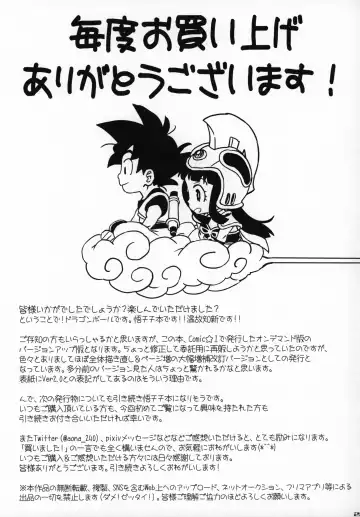 毎度お買い上げ
ありがとうございます！
皆様いかがでしたでしょうか？楽しんでいただけました？
ということで！ドラゴンボールです。悟子子本です！！温故知新です！
ご存知の方もいらっしゃるかと思いますが、この本、Comic☆1で発行したオンデマンド版の
バージョンアップ版となります。ちょっと修正して委託用に再販しようかと思っていたのですが、
色々とありましてほぼ全体描き直し＆ページ増の大幅増補改訂バージョンとしての発行と
なっています。多分前のバージョン見た人はきっと驚かれるかなと思います。
表紙にVer2.0との表記がしてあるのはそういう理由です。
んで、次の発行物についても引き続き悟子子本になりそうです。
いつもご購入頂いている方も、今回初めてご覧になって興味を持たれた方も
引き続きお付き合いいただければ幸いです。
またTwitter（@aona_240）、pixivメッセージなどなどご感想いただけると、とても励みになります。
「買いました！」の一言でも全く構いませんので、お気軽におねがいします(*^^*)
いつもご購入＆ご感想いただける方々には日々感謝しております。
皆様ありがとうございます。引き続きよろしくおねがいします！
※本作品の無断転載、複製、SNSを含むWeb上へのアップロード、ネットオークション、フリマアプリ等による
出品の一切を禁止します（ダメ！ゼッタイ！）。皆様ご理解ご協力のほどよろしくお願いします。